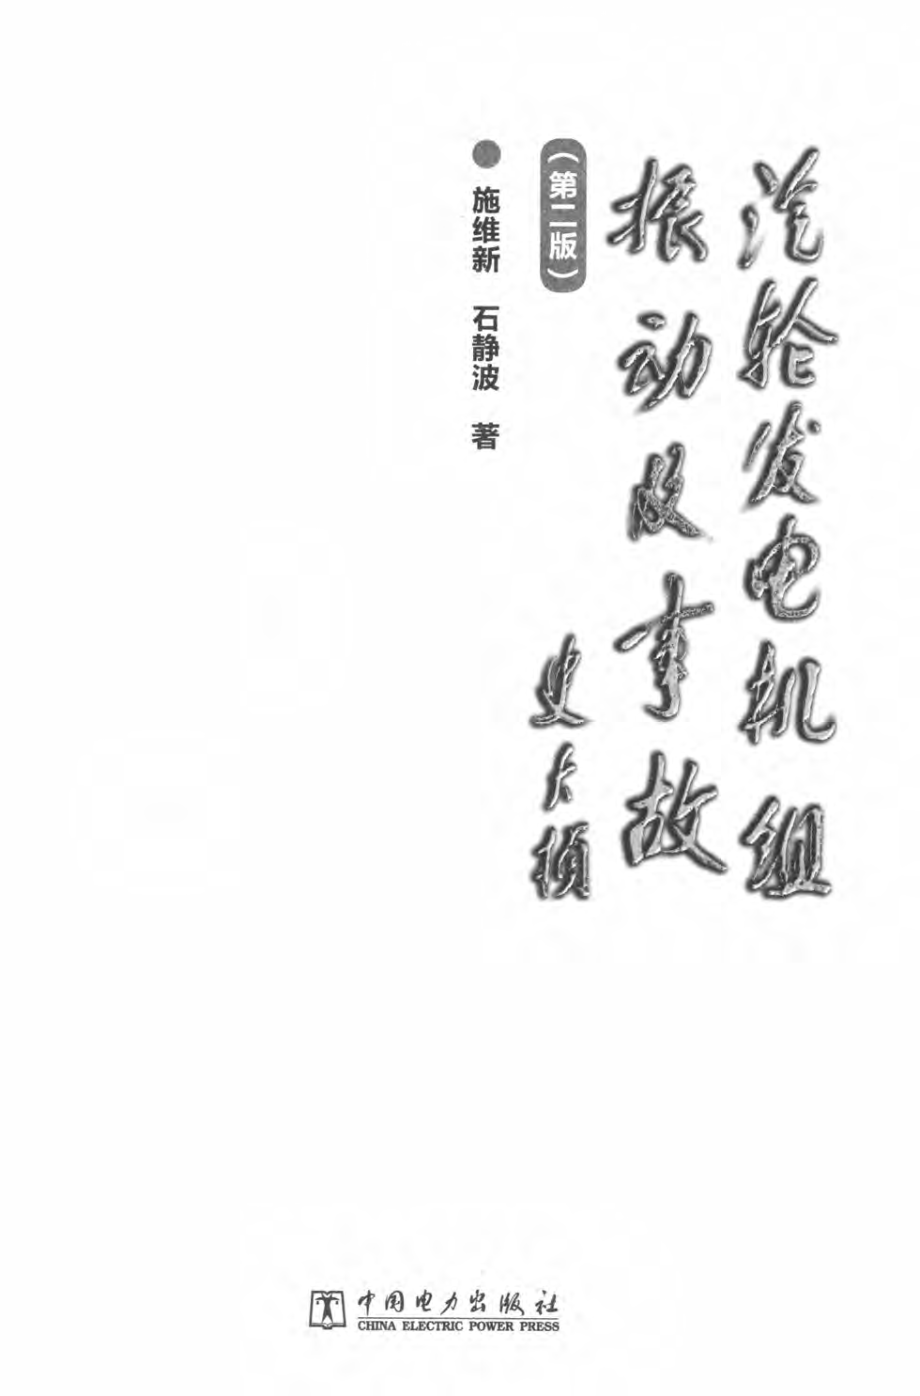 汽轮发电机组
振动及事故
史大桢
（第二版）
施维新 石静波 著
中国电力出版社
CHINA ELECTRIC POWER PRESS